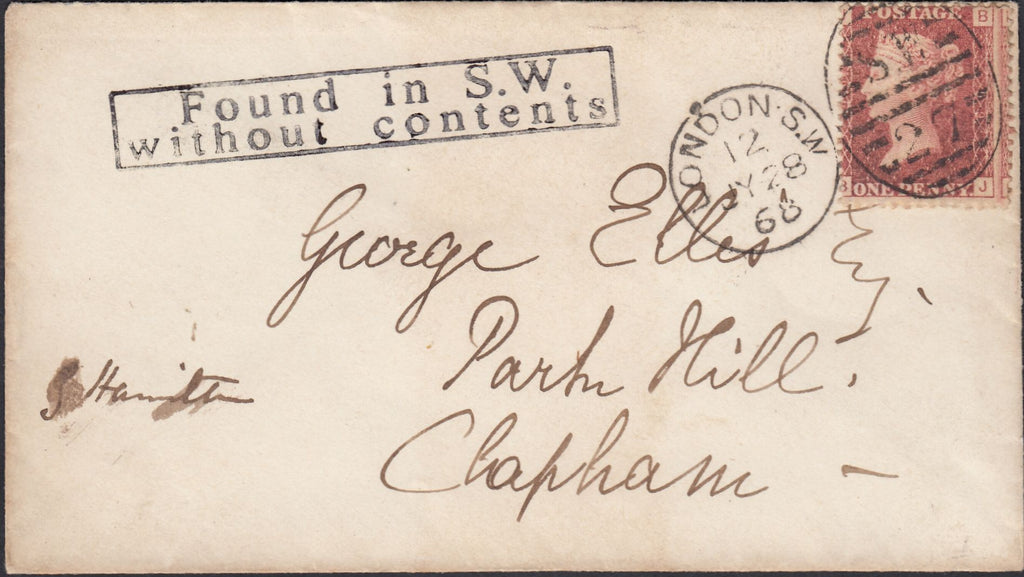 Found in S.W.
without contents
LONDON·S.W
12
JY 28
68
POSTAGE B
S W
27
ONE PENNY J
George Elles Esq.
Park Hill.
Clapham –
S Hamilton